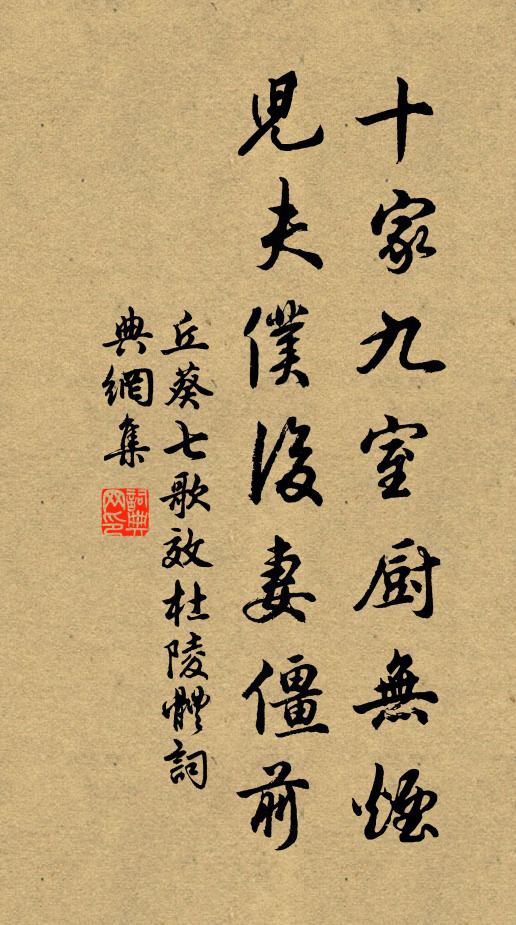 十家九室厨無煙
兒夫僕後妻僵前
丘葵七歌效杜陵體詞
典網集
詞典
网印